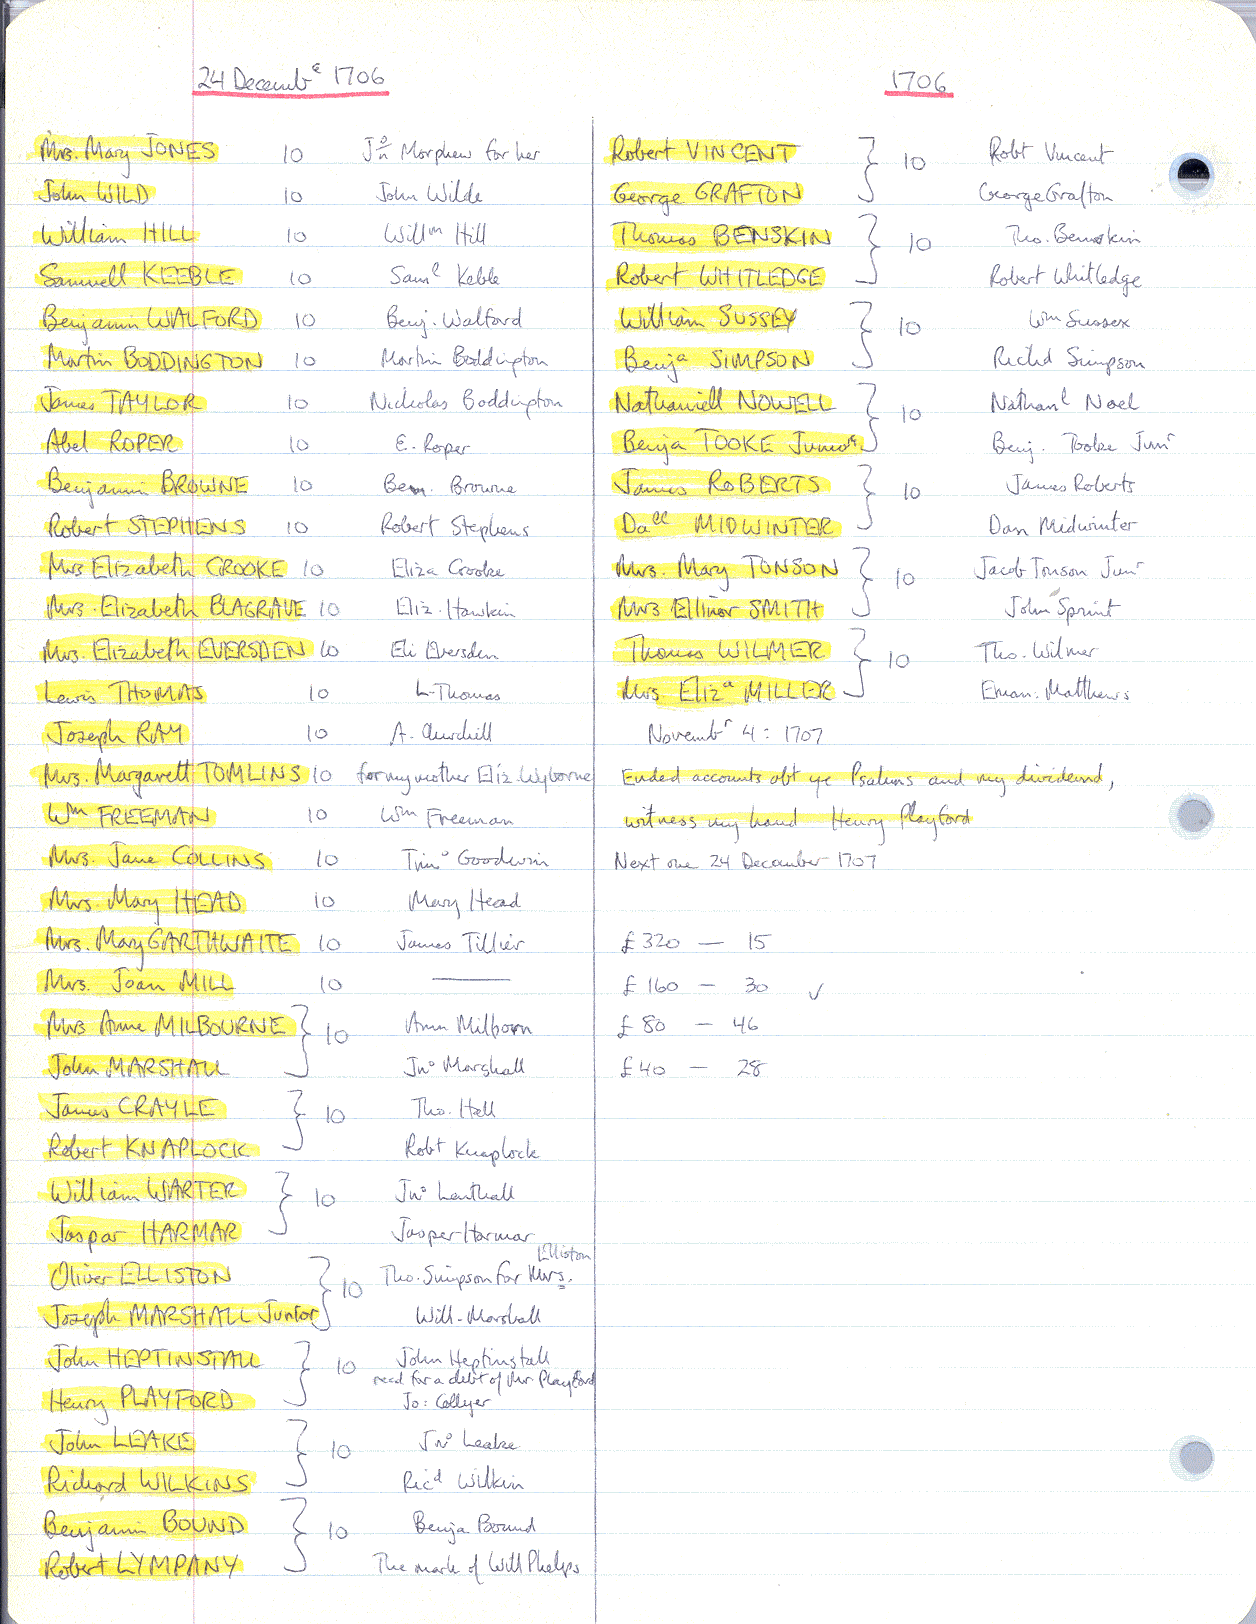 24 Decembᵉ 1706
Mrs. Mary JONES 10 Jⁿo Morphew for her
John WILD 10 John Wilde
William HILL 10 Willᵐ Hill
Samuell KEEBLE 10 Samˡ Keble
Benjamin WALFORD 10 Benj. Walford
Martin BODDINGTON 10 Martin Boddington
James TAYLOR 10 Nicholas Boddington
Abel ROPER 10 E. Roper
Benjamin BROWNE 10 Ben. Browne
Robert STEPHENS 10 Robert Stephens
Mrs Elizabeth CROOKE 10 Eliza Crooke
Mrs. Elizabeth BLAGRAVE 10 Eliz. Hawkin
Mrs. Elizabeth EVERSDEN 10 Eli Eversden
Lewis THOMAS 10 L-Thomas
Joseph RAY 10 A. Churchill
Mrs. Margarett TOMLINS 10 for my mother Eliz Wyborne
Wᵐ FREEMAN 10 Wᵐ Freeman
Mrs. Jane COLLINS 10 Timᵒ Goodwin
Mrs. Mary HEAD 10 Mary Head
Mrs. Mary GARTHWAITE 10 James Tillier
Mrs. Joan MILL 10 ———
Mrs Anne MILBOURNE } 10 Ann Milborn
John MARSHALL Jnᵒ Marshall
James CRAYLE } 10 Tho. Hall
Robert KNAPLOCK Robt Knaplock
William WARTER } 10 Jnᵒ Lenthall
Jaspar HARMAR Jasper Harmar
Oliver ELLISTON } 10 Tho. Simpson for Mrs. Elliston
Joseph MARSHALL Junior Will-Marshall
John HEPTINSTALL } 10 John Heptinstall
Henry PLAYFORD recd for a debt of Mr. Playford
Jo: Collyer
John LEAKE } 10 Jnᵒ Leake
Richard WILKINS Ricᵈ Wilkin
Benjamin BOUND } 10 Benja Bound
Robert LYMPANY The mark of Will Phelps
1706
Robert VINCENT } 10 Robt Vincent
George GRAFTON George Grafton
Thomas BENSKIN } 10 Tho. Benskin
Robert WHITLEDGE Robert Whitledge
William SUSSEX } 10 Wᵐ Sussex
Benjᵃ SIMPSON Richd Simpson
Nathaniell NOWELL } 10 Nathanˡ Noel
Benja TOOKE Junioʳ Benj. Tooke Junʳ
James ROBERTS } 10 James Roberts
Daˡˡ MIDWINTER Dan Midwinter
Mrs. Mary TONSON } 10 Jacob Tonson Junʳ
Mrs Ellinor SMITH John Sprint
Thomas WILMER } 10 Tho. Wilmer
Mrs. Elizᵃ MILLER Eman. Matthews
Novembʳ 4: 1707
Ended accounts abt ye Psalms and my dividend,
witness my hand Henry Playford
Next one 24 December 1707
£320 — 15
£160 — 30 ✓
£80 — 46
£40 — 28